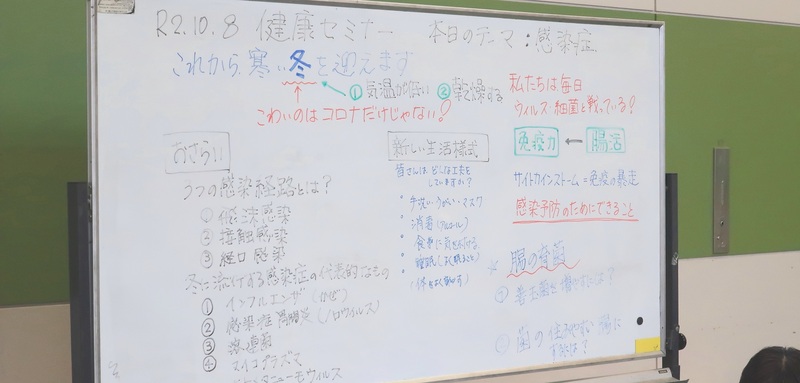 R2.10.8 健康セミナー 本日のテーマ:感染症
これから寒い冬を迎えます
①気温が低い ②乾燥する
こわいのはコロナだけじゃない!
おさらい
3つの感染経路とは?
① 飛沫感染
② 接触感染
③ 経口感染
冬に流行する感染症の代表的なもの
① インフルエンザ(かぜ)
② 感染性胃腸炎(ノロウイルス)
③ 溶連菌
④ マイコプラズマ
新しい生活様式
皆さんは、どんな工夫を
していますか?
・手洗い・うがい・マスク
・消毒(アルコール)
・食事に気を付ける
・睡眠
私たちは毎日
ウィルス・細菌と戦っている!
免疫力 ← 腸活
サイトカインストーム=免疫の暴走
感染予防のためにできること
腸の
① 善玉菌を増やすには?
② 菌の住みやすい腸に
するには?